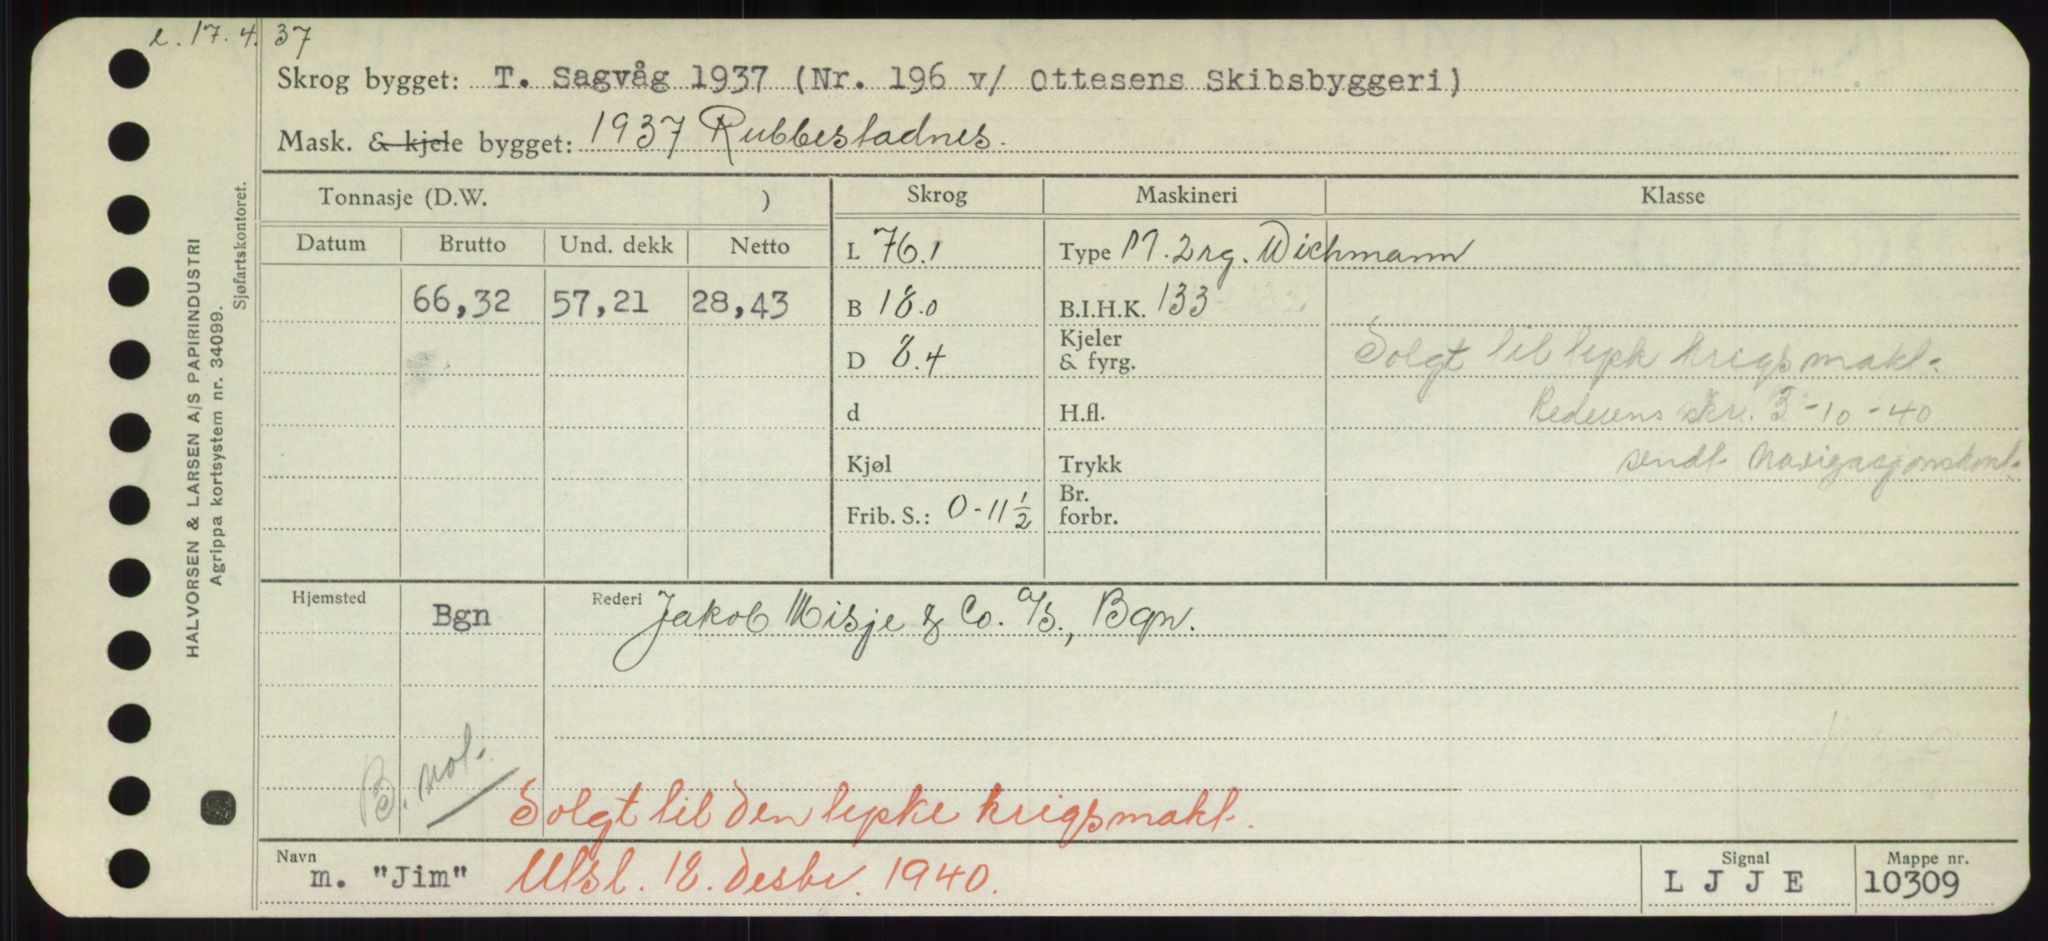 e. 17.4.37
Skrog bygget: T. Sagvåg 1937 (Nr. 196 v/ Ottesens Skibsbyggeri)
Mask. & kjele bygget: 1937 Rubbestadnes.
Tonnasje (D.W. )
Skrog
Maskineri
Klasse
Datum
Brutto
Und. dekk
Netto
L 76.1
Type M. 2rg. Wichmann
66,32
57,21
28,43
B 18.0
B.I.H.K. 133
D 8.4
Kjeler
& fyrg.
Solgt til tysk krigsmakt.
d
H.fl.
Rederens skr. 3-10-40
Kjøl
Trykk
sendt Navigasjonskont.
Frib. S.: 0-11 1/2
Br.
forbr.
Hjemsted
Bgn
Rederi Jakob Misje & Co. A/S., Bgn.
B. not.
Solgt til den tyske krigsmakt.
Navn
m. "Jim"
Utsl. 18. desbr. 1940.
Signal
L J J E
Mappe nr.
10309
HALVORSEN & LARSEN A/S PAPIRINDUSTRI
Agrippa kortsystem nr. 34099.
Sjøfartskontoret.